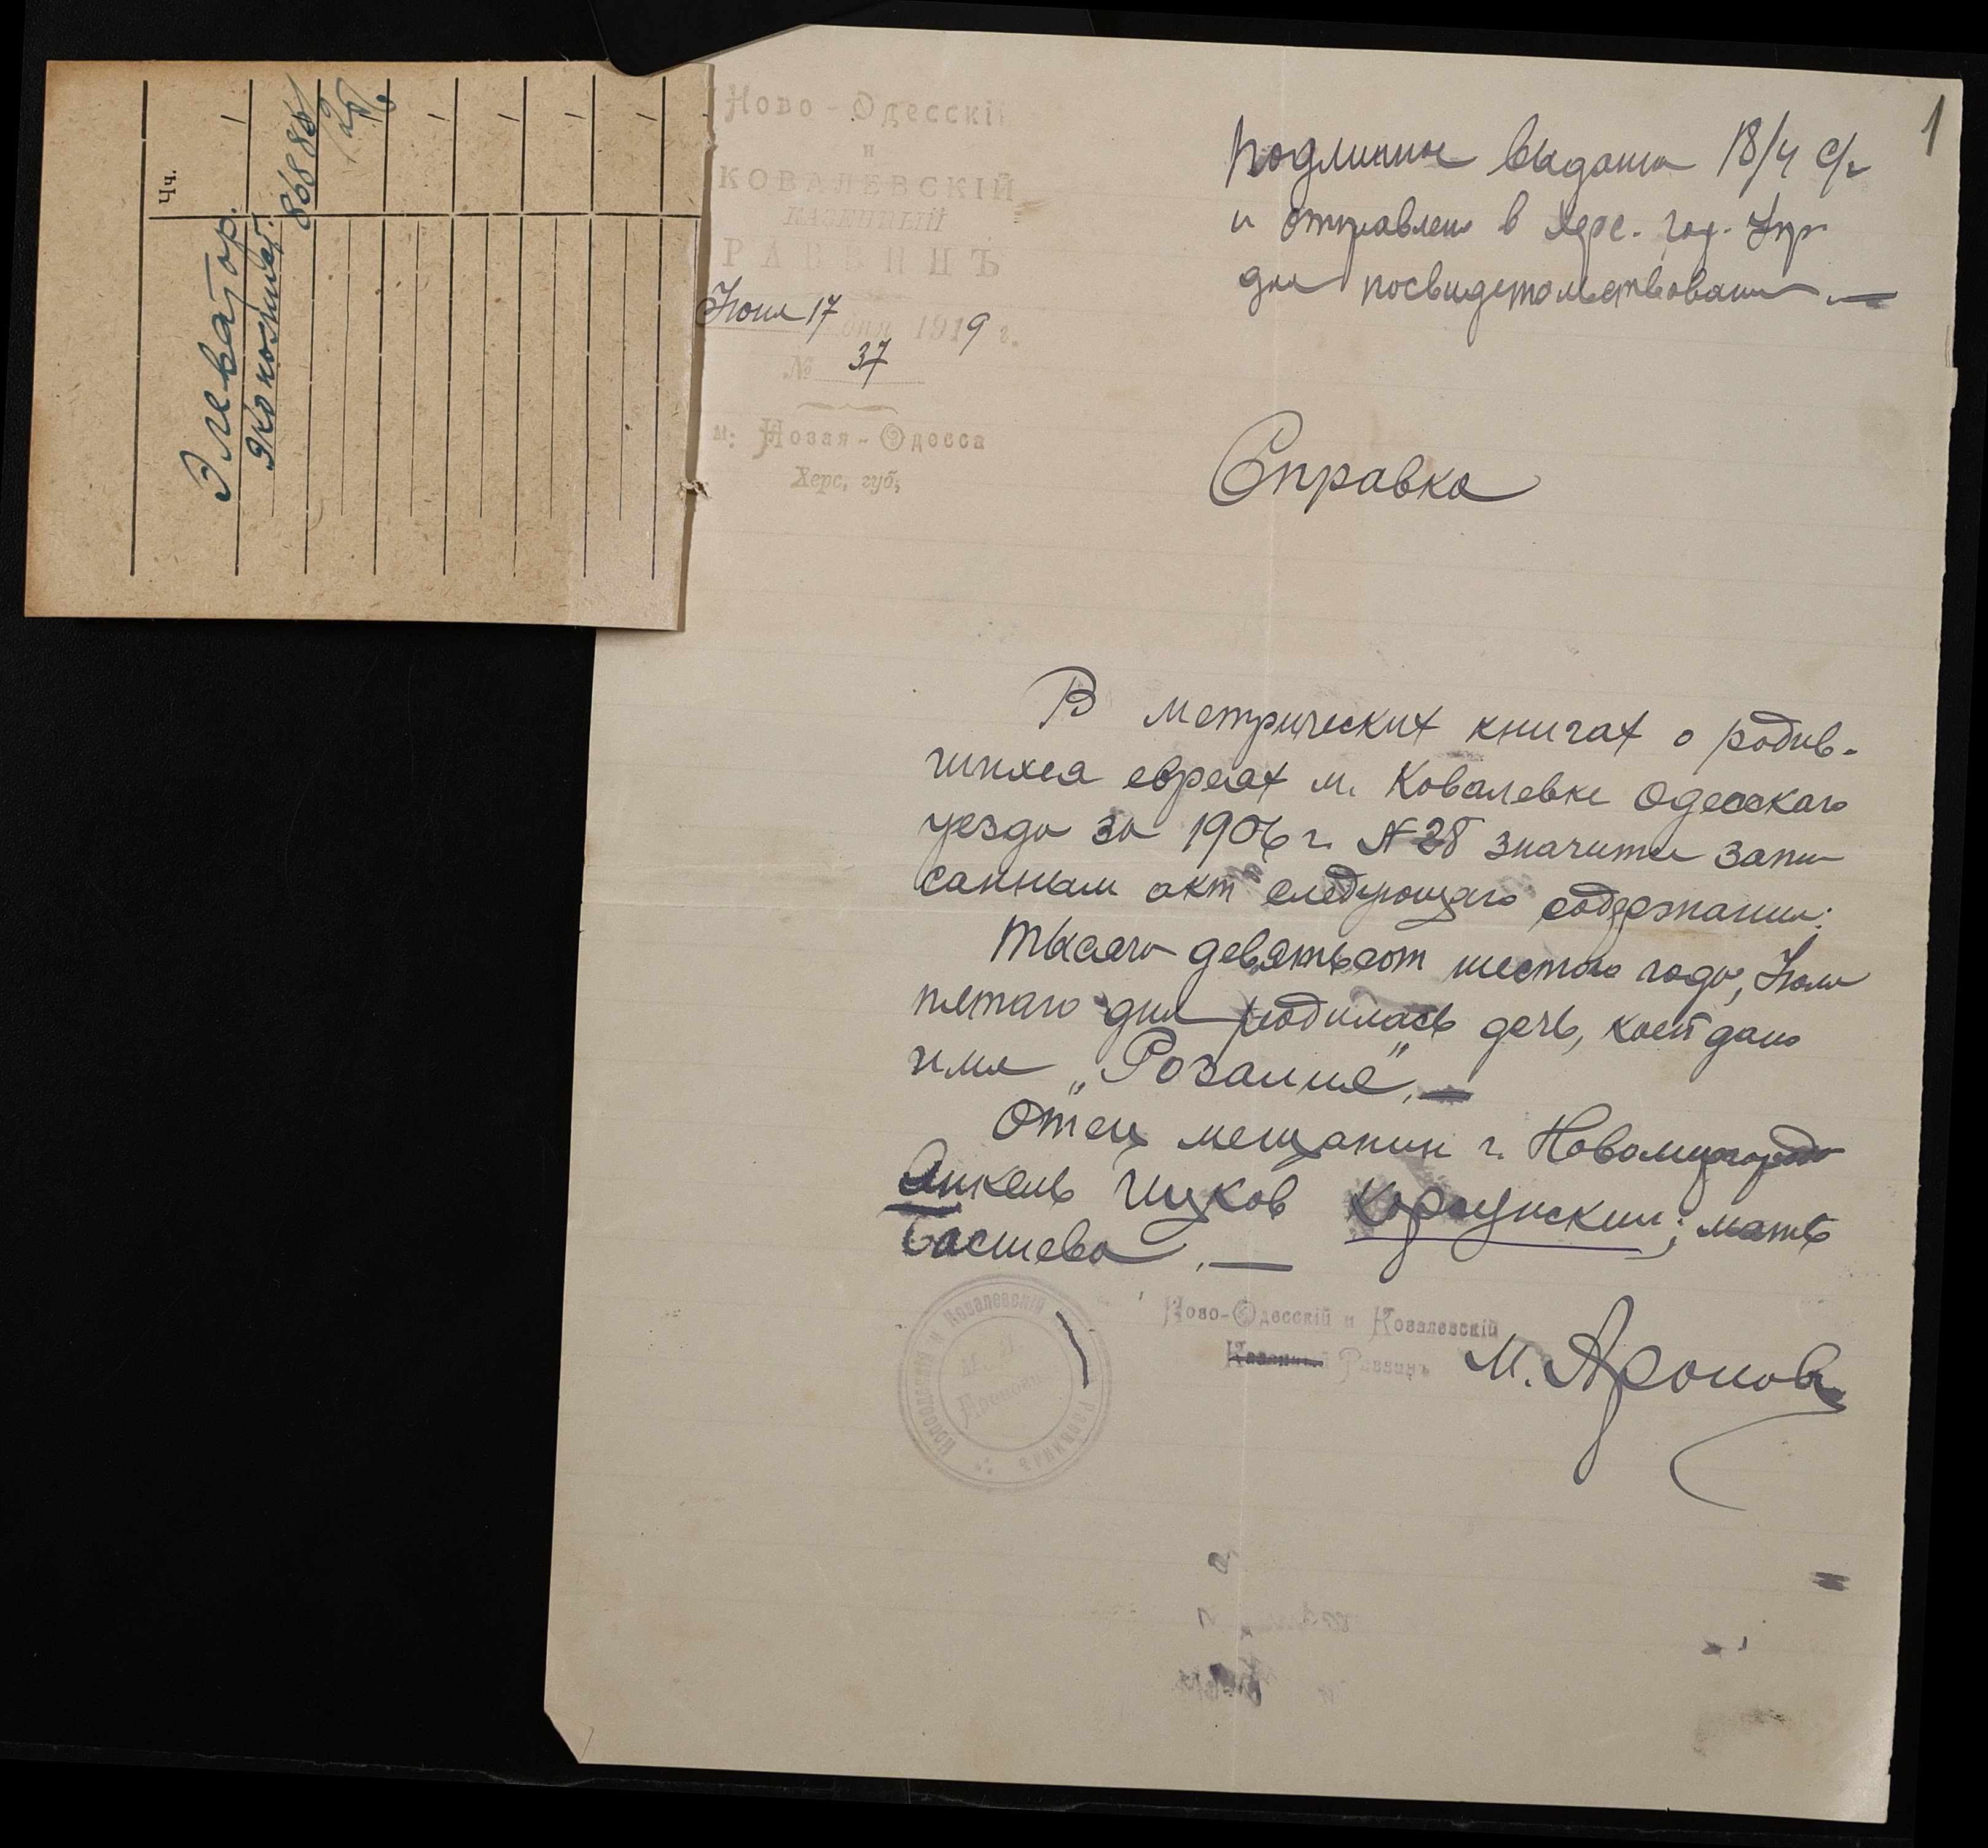 Чч.
Элеватор.
Экономист.
86888
1
Ново-Одесскій
и
КОВАЛЕВСКІЙ
КАЗЕННЫЙ
РАВВИНЪ
Июня 17 дня 1919 г.
№ 37
м: Новая-Одесса
Херс, губ,
Подлинное выдано 18/4 с/г
и отправлено в Херс. гор. Упр
для посвидетельствования. —
Справка
В метрических книгах о родив-
шихся евреях м. Ковалевке Одесскаго
уезда за 1906 г. № 28 значится запи
санным акт следующаго содержания:
Тысяча девятьсот шестого года, Июля
пятаго дня родилась дочь, коей дано
имя „Розалия“. —
Отец мещанин г. Новомиргорода
Анкель Ицков Корсунский; мать
Басшева. —
Ново-Одесскій и Ковалевскій
Казенный Раввинъ М. Аронов
и Ковалевскій Раввинъ